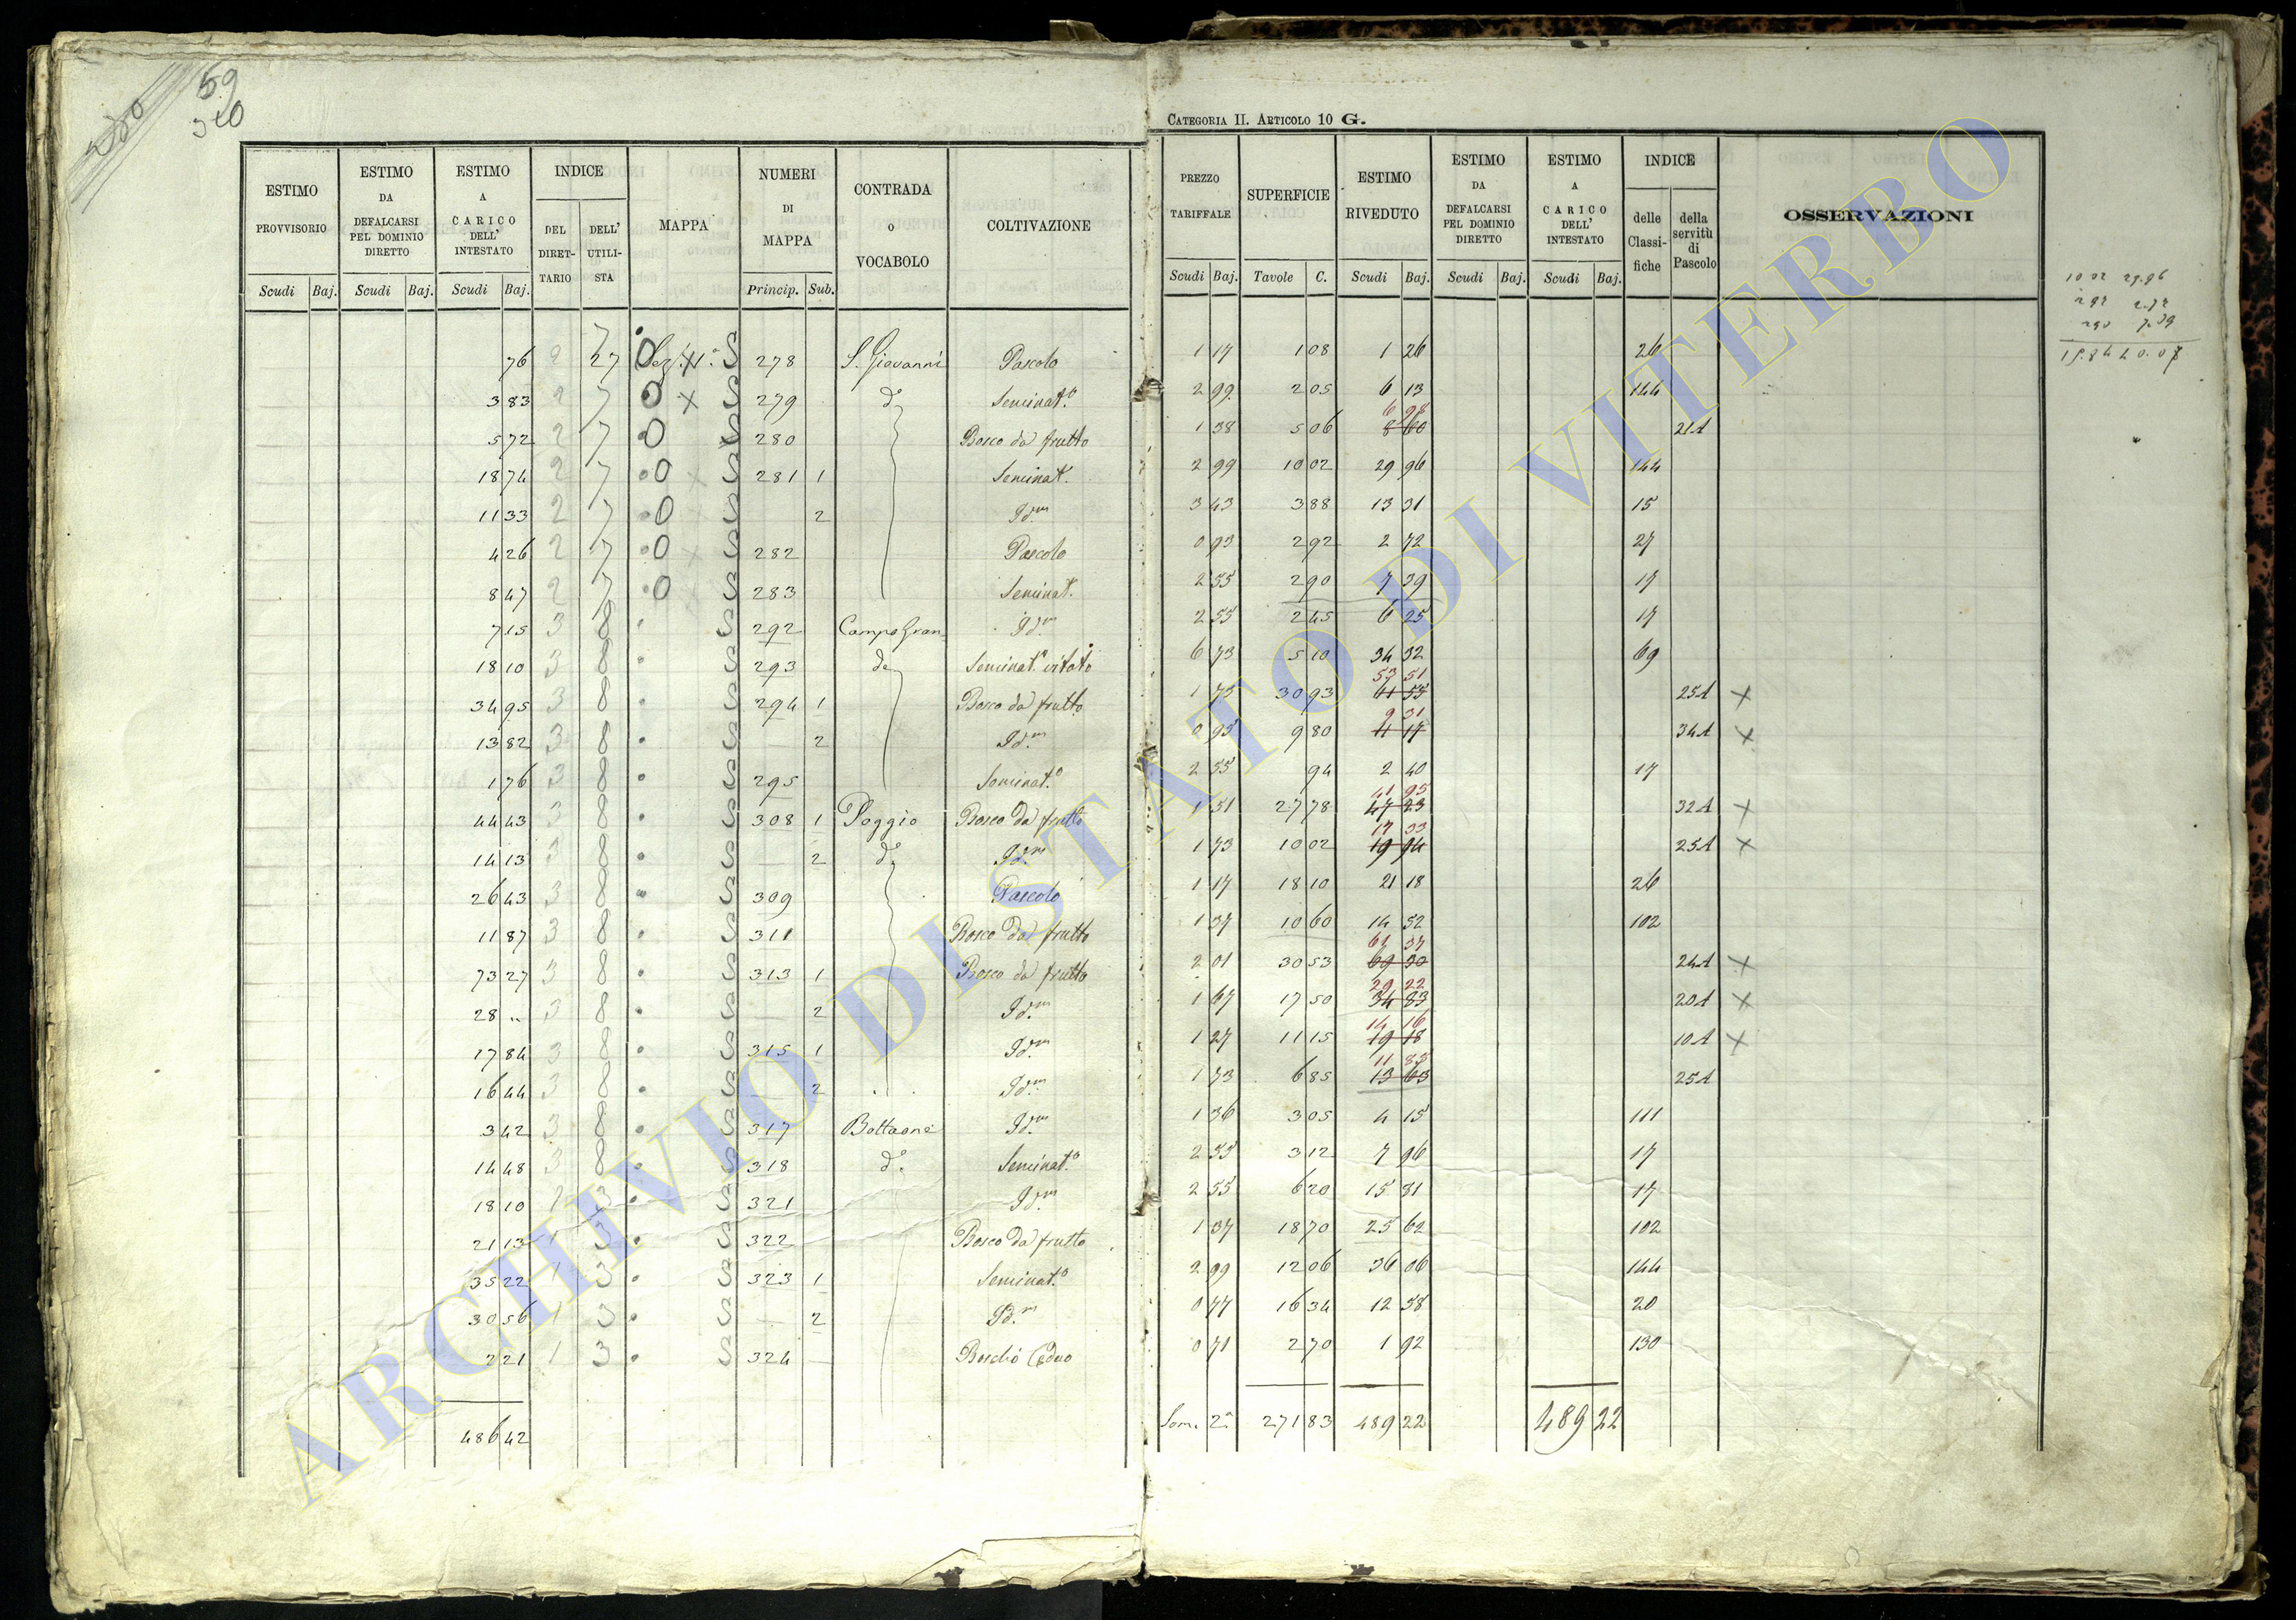 59
310
200
CATEGORIA II. ARTICOLO 10 G.
ESTIMO PROVVISORIO | ESTIMO DA DEFALCARSI PEL DOMINIO DIRETTO | ESTIMO A CARICO DELL' INTESTATO | INDICE DEL DIRETTARIO | DELL' UTILISTA | MAPPA | NUMERI DI MAPPA | CONTRADA o VOCABOLO | COLTIVAZIONE | PREZZO TARIFFALE | SUPERFICIE | ESTIMO RIVEDUTO | ESTIMO DA DEFALCARSI PEL DOMINIO DIRETTO | ESTIMO A CARICO DELL' INTESTATO | INDICE delle Classifiche | della servitù di Pascolo | OSSERVAZIONI
Scudi | Baj. | Scudi | Baj. | Scudi | Baj. | Princip. | Sub. | Scudi | Baj. | Tavole | C. | Scudi | Baj. | Scudi | Baj. | Scudi | Baj.
76 2 27 Sez. 278 S. Giovanni Pascolo 1 17 1 08 1 26 26
3 83 2 7 0 x 279 d.o Seminat.o 2 99 2 05 6 13 144
5 72 2 7 0 x 280 Bosco da frutto 1 38 5 06 8 60 6 98 21A
18 74 2 7 0 x 281 1 Seminat. 2 99 10 02 29 96 144
11 33 2 7 0 2 Id.m 3 43 3 88 13 31 15
4 26 2 7 0 x 282 Pascolo 0 93 2 92 2 72 27
8 47 2 7 0 283 Seminat. 2 55 2 90 7 39 17
7 15 3 8 292 Campo Gran Id.m 2 55 2 45 6 25 17
18 10 3 8 293 d.o Seminat.o vitato 6 73 5 10 34 32 69
34 95 3 8 294 1 Bosco da frutto 1 73 30 93 61 55 53 51 25A x
13 82 3 8 2 Id.m 0 95 9 80 11 17 9 31 34A x
1 76 3 8 295 Seminat.o 2 55 94 2 40 17
44 43 3 8 308 1 Poggio Bosco da frutto 1 51 27 78 47 23 41 95 32A x
14 13 3 8 2 d.o Id.m 1 73 10 02 19 94 17 33 25A x
26 43 3 8 309 Pascolo 1 17 18 10 21 18 26
11 87 3 8 311 Bosco da frutto 1 37 10 60 14 52 102
73 27 3 8 313 1 Bosco da frutto 2 01 30 53 69 30 61 37 24A x
28 .. 3 8 2 Id.m 1 67 17 50 34 83 29 22 20A x
17 84 3 8 315 1 Id.m 1 27 11 15 19 18 14 16 10A x
16 44 3 8 2 Id.m 1 73 6 85 13 63 11 85 25A
3 42 3 8 317 Bottaone Id.m 1 36 3 05 4 15 111
14 48 3 8 318 d.o Seminat.o 2 55 3 12 7 96 17
18 10 1 3 321 Id.m 2 55 6 20 15 81 17
21 13 1 3 322 Bosco da frutto 1 37 18 70 25 62 102
35 22 1 3 323 1 Seminat.o 2 99 12 06 36 06 144
30 56 1 3 2 Id.m 0 77 16 34 12 58 20
2 21 1 3 324 Boschо Ceduo 0 71 2 70 1 92 130
486 42 Som. 2a 271 83 489 22 489 22
10 02 29.96
2 92 2.72
2 90 7.39
15.84 40.07
ARCHIVIO DI STATO DI VITERBO